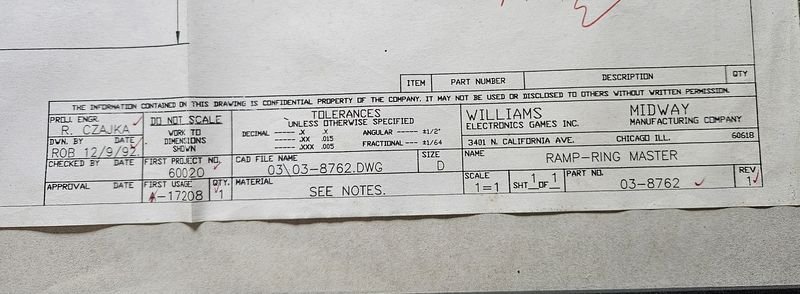 ITEM PART NUMBER DESCRIPTION QTY
THE INFORMATION CONTAINED ON THIS DRAWING IS CONFIDENTIAL PROPERTY OF THE COMPANY. IT MAY NOT BE USED OR DISCLOSED TO OTHERS WITHOUT WRITTEN PERMISSION.
PROJ. ENGR.
R. CZAJKA
DWN. BY DATE
ROB 12/9/92
CHECKED BY DATE
APPROVAL DATE
DO NOT SCALE
WORK TO
DIMENSIONS
SHOWN
FIRST PROJECT NO.
60020
FIRST USAGE QTY.
A-17208 1
TOLERANCES
UNLESS OTHERWISE SPECIFIED
DECIMAL ----- .X .X ANGULAR ---- ±1/2°
----- .XX .015 FRACTIONAL ---- ±1/64
----- .XXX .005
CAD FILE NAME SIZE
03\03-8762.DWG D
MATERIAL
SEE NOTES.
WILLIAMS
ELECTRONICS GAMES INC.
MIDWAY
MANUFACTURING COMPANY
3401 N. CALIFORNIA AVE. CHICAGO ILL. 60618
NAME
RAMP-RING MASTER
SCALE
1=1
SHT 1 OF 1
PART NO.
03-8762
REV
1